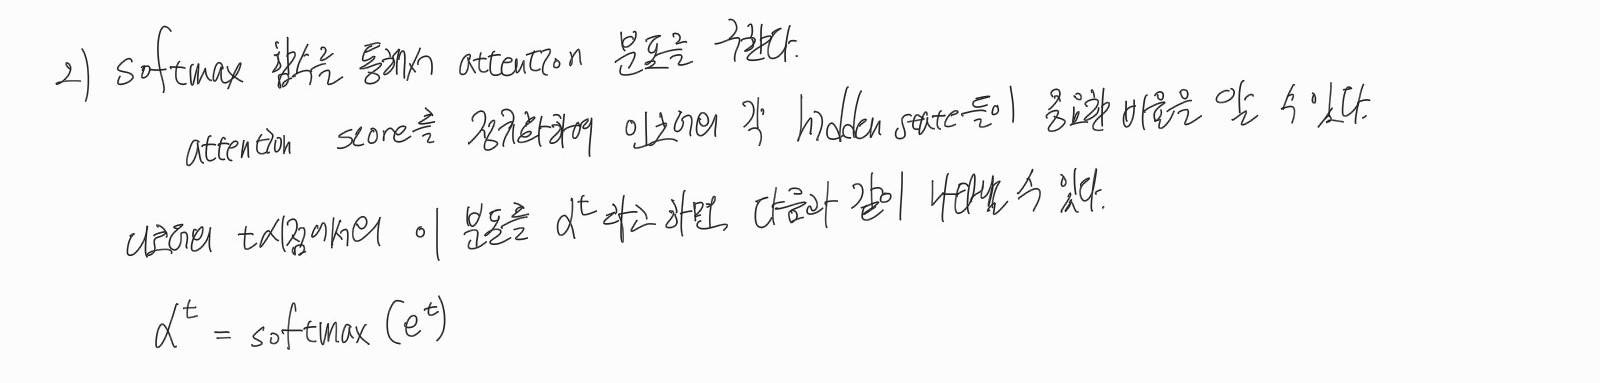 2) softmax 함수를 통해서 attention 분포를 구한다.
attention score를 정규화하여 인코더의 각 hidden state들이 중요한 비율을 알 수 있다.
디코더의 t시점에서의 이 분포를 α^t 라고 하면, 다음과 같이 나타낼 수 있다.
α^t = softmax (e^t)